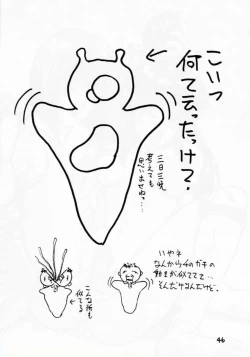 こいつ
何て云ったっけ?
三日三晩
考えても
思いませねっ…
いやネ
なんかうチのガキの
動きが似ててて…
そんだけなんだけど。
こんな所も
似てる
46